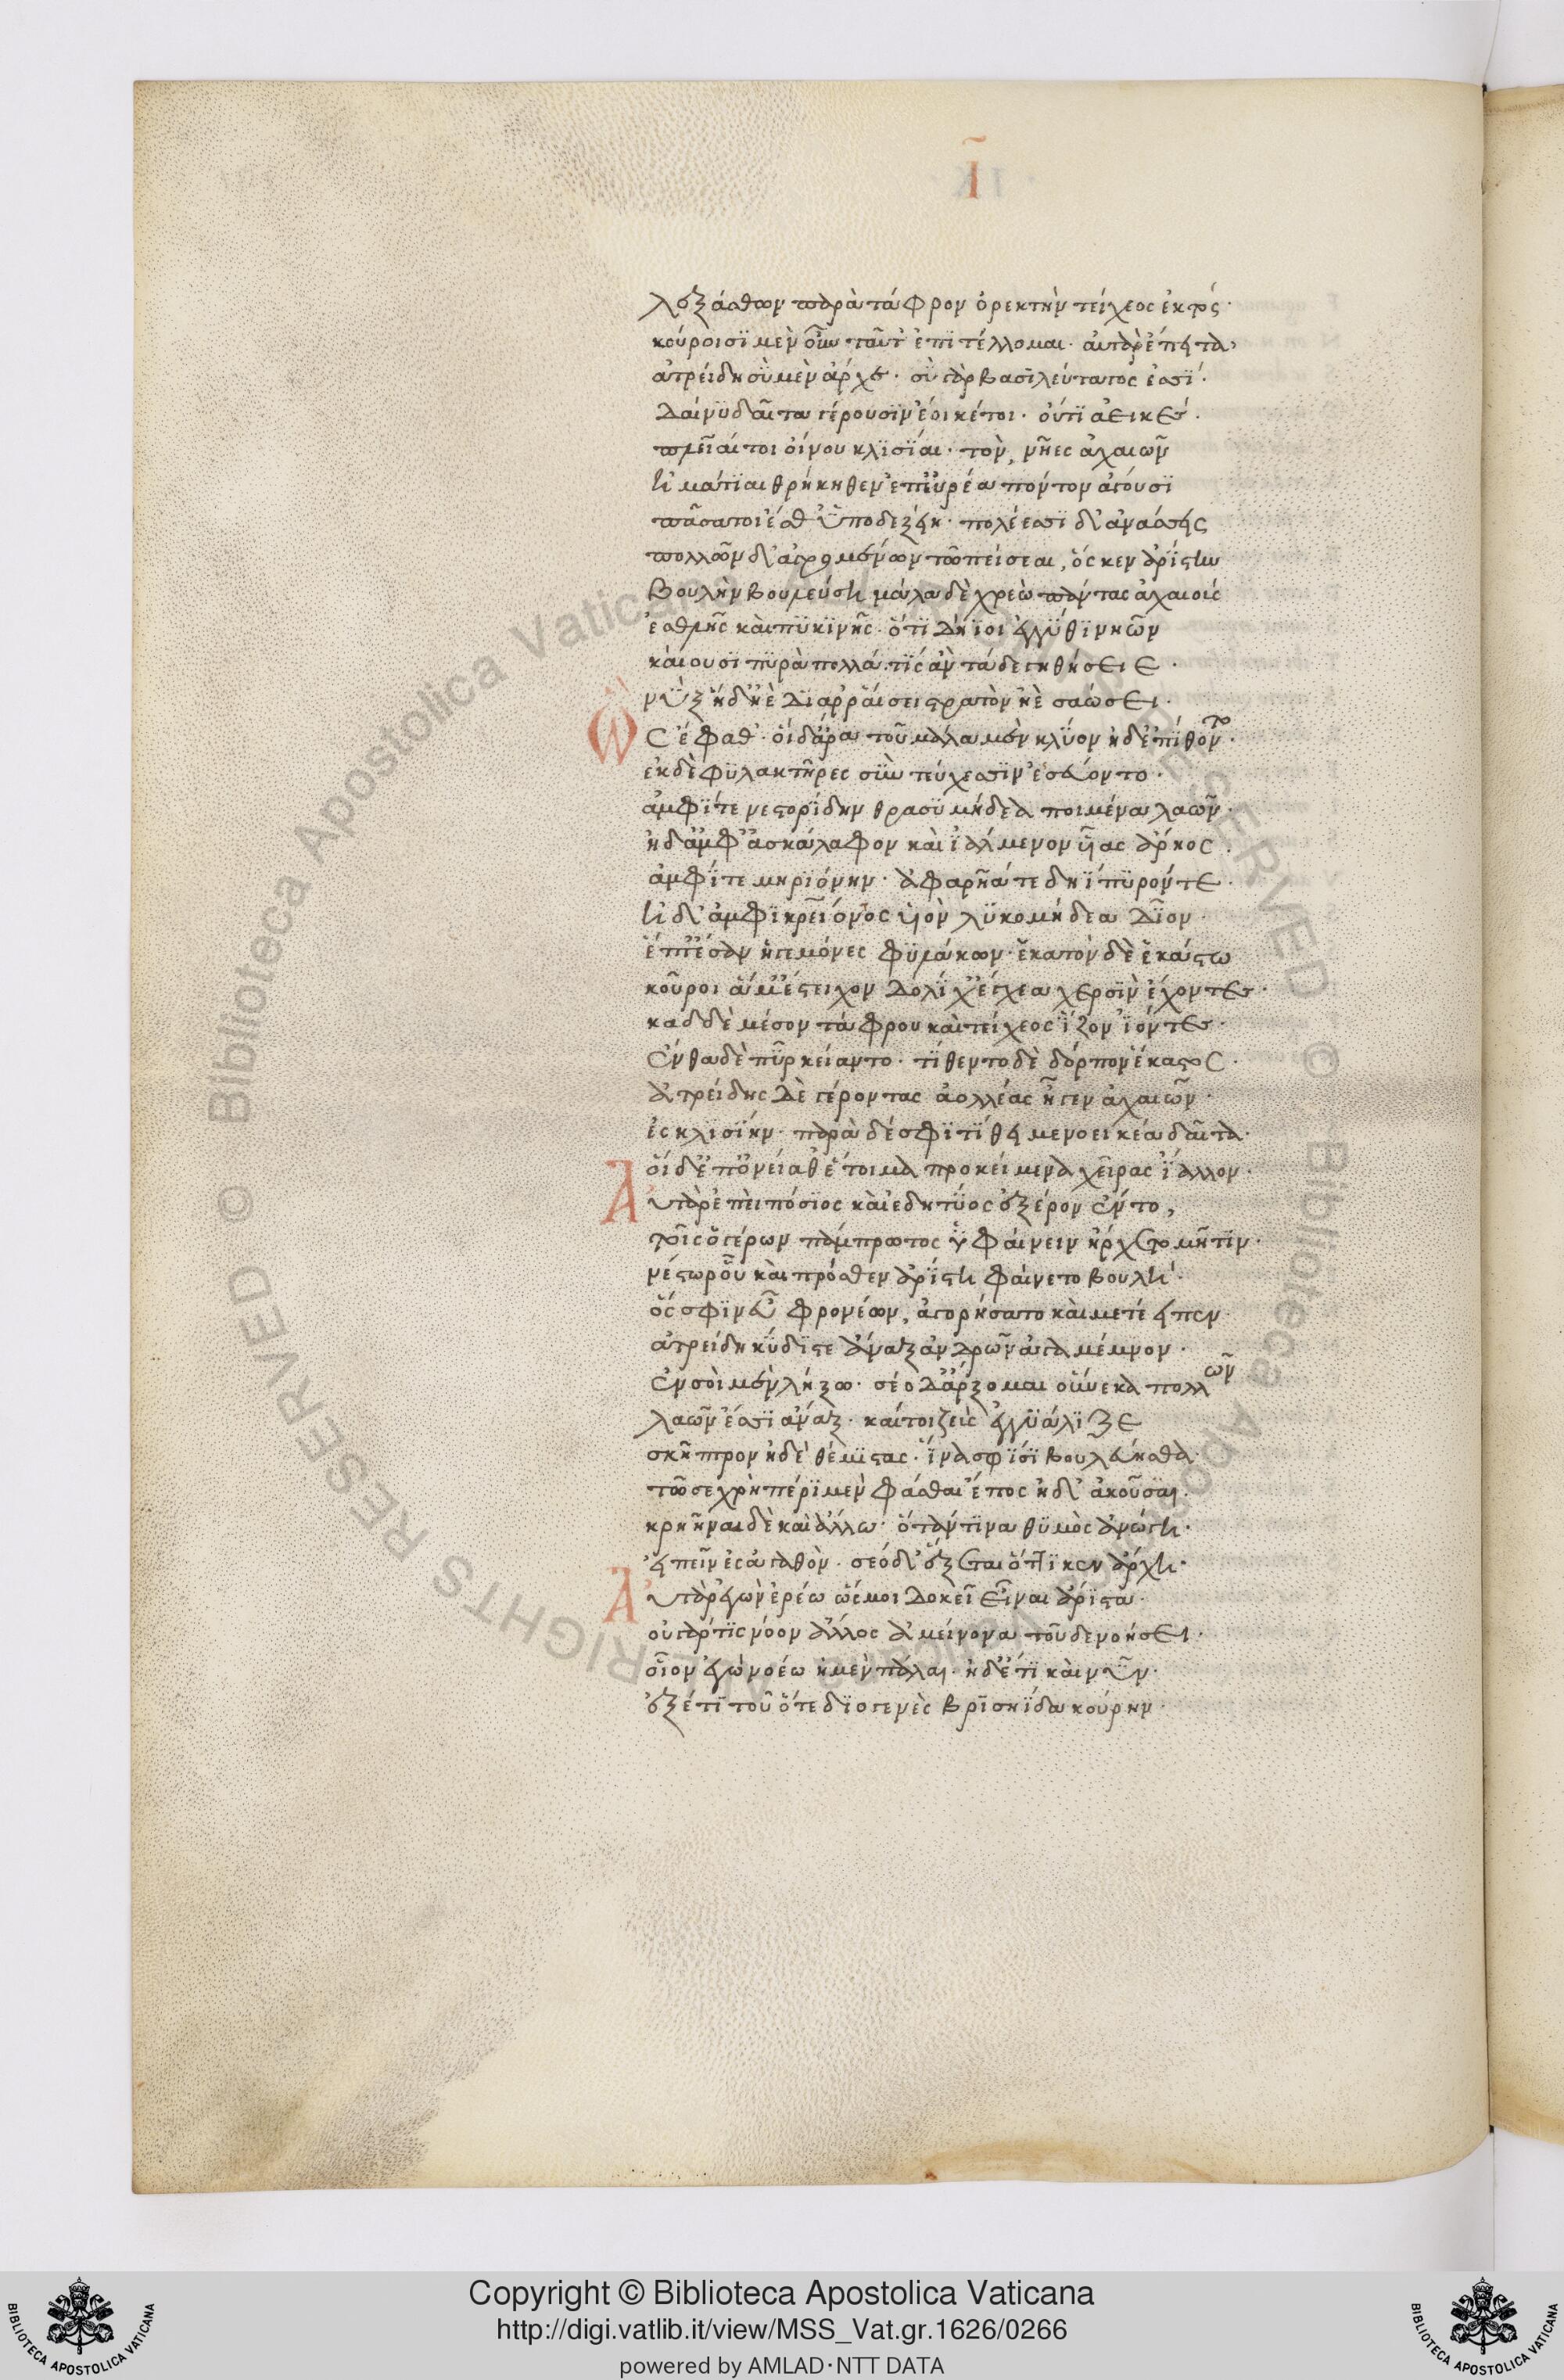 Ι
λεξάσθων παρὰ τάφρον ὀρεκτὴν τείχεος ἐκτός·
κούροισϊ μὲν οὖν ταῦτ' ἐπϊτέλλομαι· αὐτὰρ ἔπειτα,
ἀτρείδη σὺ μὲν ἄρχε· σὺ γὰρ βασϊλεύτατος ἐσσϊ·
δαίνϋ δαῖτα γέρουσϊν ἔοικέ τοι· οὔτϊ ἀεικές·
πλεῖαί τοι οἴνου κλϊσΐαι· τὸν, νῆες ἀχαιῶν
ἠμάτϊαι θρήκηθεν ἐπ' εὐρέα πόντον ἄγουσϊ
πᾶσά τοι ἔσθ' ὑποδεξείη· πολέεσσϊ δ' ἀνάσσεις
πολλῶν δ' ἀγρομένων τῶ πείσεαι, ὅς κεν ἀρΐστην
βουλὴν βουλεύση μάλα δὲ χρεὼ πάντας ἀχαιοὺς
ἐσθλῆς καὶ πϋκϊνῆς· ὅτϊ δήϊοι ἐγγΰθϊ νηῶν
καίουσϊ πϋρὰ πολλά· τΐς ἂν τάδε γηθήσειε·
νὺξ ἥδ' ἠὲ δϊαρραίσει στρατὸν ἠὲ σαώσει·
Ὣς ἔφαθ'· οἱ δ' ἄρα τοῦ μάλα μὲν κλΰον ἠδ' ἐπΐθοντο·
ἐκ δὲ φϋλακτῆρες σὺν τεύχεσϊν ἐσσεύοντο·
ἀμφΐ τε νεστορΐδην θρασϋμήδεα ποιμένα λαῶν·
ἠδ' ἀμφ' ἀσκάλαφον καὶ ἰάλμενον υἷας ἄρηος·
ἀμφΐ τε μηρϊόνην· ἀφαρῆά τε δηΐπϋρόν τε·
ἠδ' ἀμφϊ κρείοντος υἱὸν λϋκομήδεα δῖον·
ἕπτ' ἔσαν ἡγεμόνες φϋλάκων· ἑκατὸν δὲ ἑκάστω
κοῦροι ἅμ' ἔστειχον δολΐχ' ἔγχεα χερσϊν ἔχοντες·
καδδὲ μέσον τάφρου καὶ τείχεος ἷζον ἰόντες·
ἔνθα δὲ πῦρ κείαντο· τΐθεντο δὲ δόρπον ἕκαστος·
ἀτρείδης δὲ γέροντας ἀολλέας ἦγεν ἀχαιῶν·
ἐς κλϊσΐην· παρὰ δέ σφϊ τΐθει μενοεικέα δαῖτα·
οἱ δ' ἐπ' ὀνείαθ' ἑτοῖμα προκείμενα χεῖρας ἴαλλον·
Αὐτὰρ ἐπεὶ πόσϊος καὶ ἐδητΰος ἐξ ἔρον ἕντο,
τοῖς ὁ γέρων πάμπρωτος ὑφαίνειν ἤρχετο μῆτϊν·
νέστωρ οὗ καὶ πρόσθεν ἀρΐστη φαίνετο βουλή·
ὅς σφϊν εὖ φρονέων, ἀγορήσατο καὶ μετέειπεν·
ἀτρείδη κΰδϊστε ἄναξ ἀνδρῶν ἀγάμεμνον·
ἐν σοὶ μὲν λήξω· σέο δ' ἄρξομαι οὕνεκα πολλῶν
λαῶν ἐσσϊ ἄναξ· καί τοι ζεὺς ἐγγϋάλϊξε
σκῆπτρον ἠδὲ θέμϊστας· ἵνα σφΐσϊ βουλεύησθα·
τῶ σε χρὴ πέρϊ μὲν φάσθαι ἔπος ἠδ' ἀκοῦσαι·
κρηῆναι δὲ καὶ ἄλλω· ὅτ' ἄν τϊνα θϋμὸς ἀνώγη·
εἰπεῖν εἰς ἀγαθὸν· σέο δ' ἕξεται ὅττϊ κεν ἄρχη·
Αὐτὰρ ἐγὼν ἐρέω ὥς μοι δοκεῖ εἶναι ἄρϊστα·
οὐ γάρ τϊς νόον ἄλλος ἀμείνονα τοῦδε νοήσει·
οἷον ἐγὼ νοέω ἠμὲν πάλαι· ἠδ' ἔτϊ καὶ νῦν·
ἐξέτϊ τοῦ ὅτε δϊογενὲς βρϊσηΐδα κούρην·
Copyright © Biblioteca Apostolica Vaticana
http://digi.vatlib.it/view/MSS_Vat.gr.1626/0266
powered by AMLAD·NTT DATA